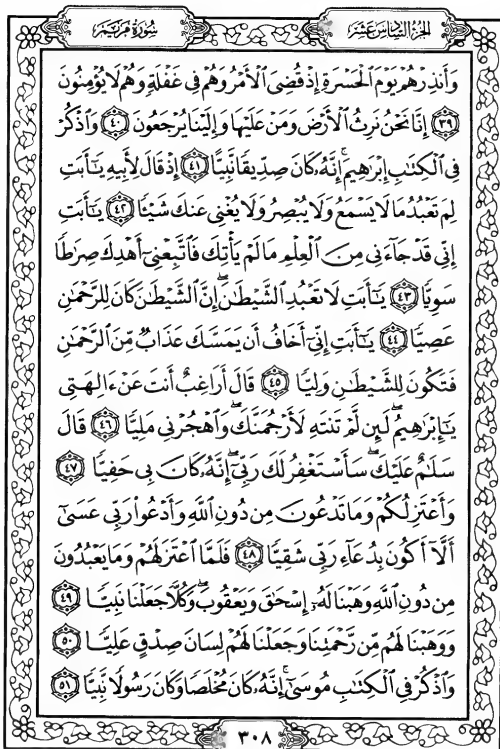 سُورَةُ مَرْيَمَ
الجُزْءُ السَّادِسَ عَشَرَ
وَأَنذِرْهُمْ يَوْمَ ٱلْحَسْرَةِ إِذْ قُضِىَ ٱلْأَمْرُ وَهُمْ فِى غَفْلَةٍ وَهُمْ لَا يُؤْمِنُونَ
٣٩ إِنَّا نَحْنُ نَرِثُ ٱلْأَرْضَ وَمَنْ عَلَيْهَا وَإِلَيْنَا يُرْجَعُونَ ٤٠ وَٱذْكُرْ
فِى ٱلْكِتَٰبِ إِبْرَٰهِيمَ ۚ إِنَّهُۥ كَانَ صِدِّيقًا نَّبِيًّا ٤١ إِذْ قَالَ لِأَبِيهِ يَٰٓأَبَتِ
لِمَ تَعْبُدُ مَا لَا يَسْمَعُ وَلَا يُبْصِرُ وَلَا يُغْنِى عَنكَ شَيْـًٔا ٤٢ يَٰٓأَبَتِ
إِنِّى قَدْ جَآءَنِى مِنَ ٱلْعِلْمِ مَا لَمْ يَأْتِكَ فَٱتَّبِعْنِىٓ أَهْدِكَ صِرَٰطًا
سَوِيًّا ٤٣ يَٰٓأَبَتِ لَا تَعْبُدِ ٱلشَّيْطَٰنَ ۖ إِنَّ ٱلشَّيْطَٰنَ كَانَ لِلرَّحْمَٰنِ
عَصِيًّا ٤٤ يَٰٓأَبَتِ إِنِّىٓ أَخَافُ أَن يَمَسَّكَ عَذَابٌ مِّنَ ٱلرَّحْمَٰنِ
فَتَكُونَ لِلشَّيْطَٰنِ وَلِيًّا ٤٥ قَالَ أَرَاغِبٌ أَنتَ عَنْ ءَالِهَتِى
يَٰٓإِبْرَٰهِيمُ ۖ لَئِن لَّمْ تَنتَهِ لَأَرْجُمَنَّكَ ۖ وَٱهْجُرْنِى مَلِيًّا ٤٦ قَالَ
سَلَٰمٌ عَلَيْكَ ۖ سَأَسْتَغْفِرُ لَكَ رَبِّىٓ ۖ إِنَّهُۥ كَانَ بِى حَفِيًّا ٤٧
وَأَعْتَزِلُكُمْ وَمَا تَدْعُونَ مِن دُونِ ٱللَّهِ وَأَدْعُوا۟ رَبِّى عَسَىٰٓ
أَلَّآ أَكُونَ بِدُعَآءِ رَبِّى شَقِيًّا ٤٨ فَلَمَّا ٱعْتَزَلَهُمْ وَمَا يَعْبُدُونَ
مِن دُونِ ٱللَّهِ وَهَبْنَا لَهُۥٓ إِسْحَٰقَ وَيَعْقُوبَ ۖ وَكُلًّا جَعَلْنَا نَبِيًّا ٤٩
وَوَهَبْنَا لَهُم مِّن رَّحْمَتِنَا وَجَعَلْنَا لَهُمْ لِسَانَ صِدْقٍ عَلِيًّا ٥٠
وَٱذْكُرْ فِى ٱلْكِتَٰبِ مُوسَىٰٓ ۚ إِنَّهُۥ كَانَ مُخْلَصًا وَكَانَ رَسُولًا نَّبِيًّا ٥١
٣٠٨